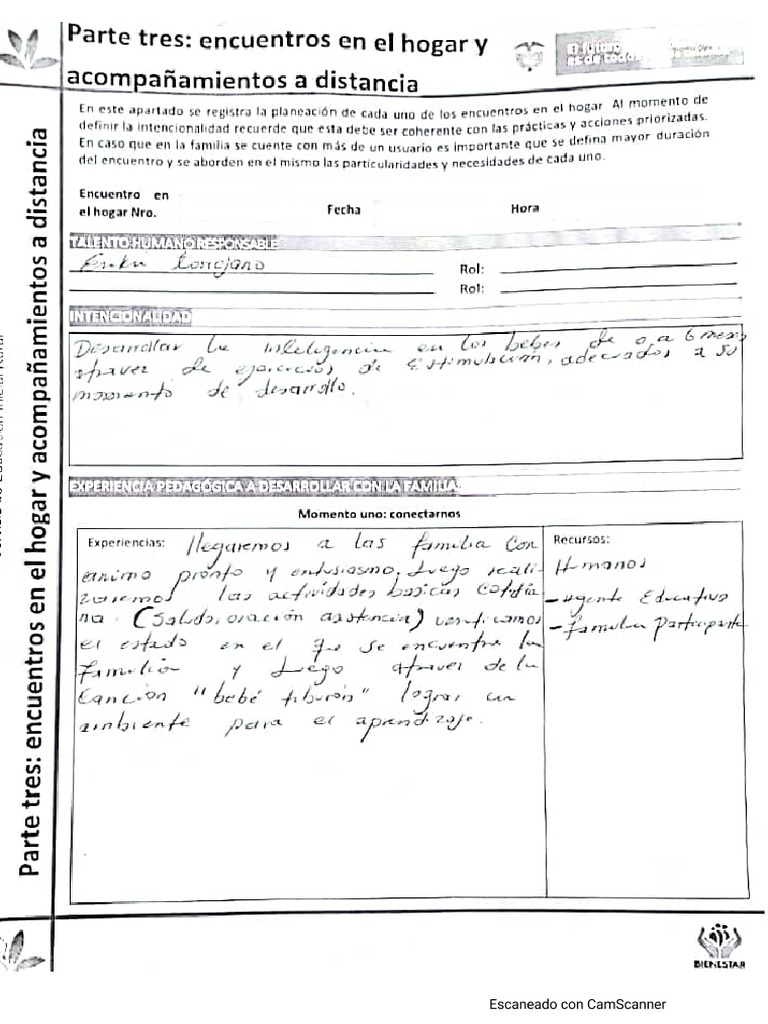 Parte tres: encuentros en el hogar y
acompañamientos a distancia
El futuro
es de todos
En este apartado se registra la planeación de cada uno de los encuentros en el hogar Al momento de
definir la intencionalidad recuerde que esta debe ser coherente con las prácticas y acciones priorizadas.
En caso que en la familia se cuente con más de un usuario es importante que se defina mayor duración
del encuentro y se aborden en el mismo las particularidades y necesidades de cada uno.
Encuentro en
el hogar Nro. Fecha Hora
TALENTO HUMANO RESPONSABLE
Rol:
Rol:
INTENCIONALIDAD
Desarrollar la inteligencia en los bebes de 0 a 6 meses
atravez de ejercicios de Estimulación, adecuados a su
momento de desarrollo.
EXPERIENCIA PEDAGÓGICA A DESARROLLAR CON LA FAMILIA
Momento uno: conectarnos
Experiencias: llegaremos a las familia con
animo pronto y entusiasmo. luego reali-
zaremos las actividades basicas cotidia
na. (Saludo, oración asistencia) verificamos
el estado en el que se encuentra la
familia y luego atravez de la
Canción "bebé tiburón" lograr un
ambiente para el aprendizaje.
Recursos:
Humanos
-agente Educativo
-familia Participante
Parte tres: encuentros en el hogar y acompañamientos a distancia
BIENESTAR
Escaneado con CamScanner